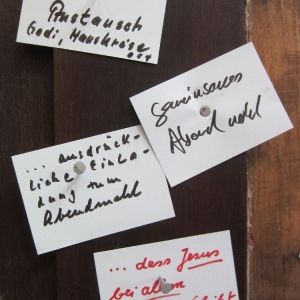 Austausch
Godi, Hauskreise
...
gemeinsames
Abendmahl
... ausdrück-
liche Einla-
dung zum
Abendmahl
... dass Jesus
bei allem